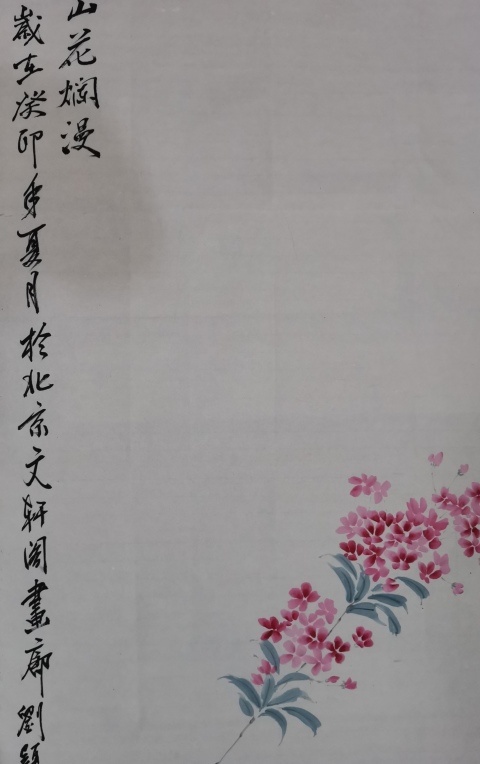 山花烂漫
歲在癸卯年夏月於北京文轩阁畫廊劉穎